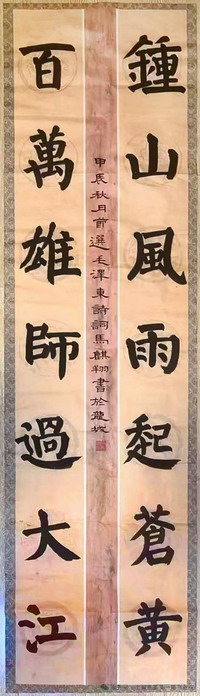 鍾山風雨起蒼黃
百萬雄師過大江
甲辰秋月節選毛澤東詩詞馬麒翔書於龍城